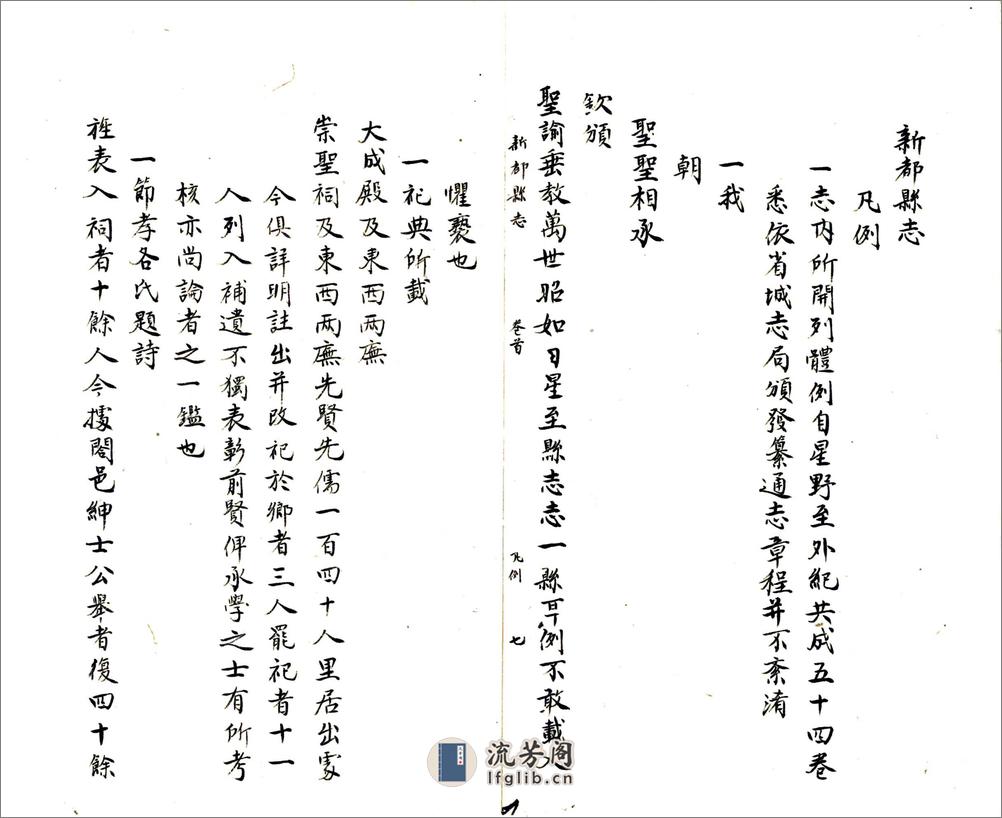 新都縣志
凡例
一志内所開列體例自星野至外紀共成五十四卷
悉依省城志局頒發纂通志章程并不紊淆
一我
朝
聖聖相承
欽頒
聖諭垂教萬世昭如日星至縣志志一縣耳例不敢載
新都縣志 卷首 凡例 七
懼褻也
一祀典所載
大成殿及東西兩廡
崇聖祠及東西兩廡先賢先儒一百四十人里居出處
今俱詳明註出并改祀於鄉者三人罷祀者十一
人列入補遺不獨表彰前賢俾承學之士有所考
核亦尚論者之一鑑也
一節孝各氏題詩
旌表入祠者十餘人今據閤邑紳士公舉者復四十餘
流芳阁
lfglib.cn